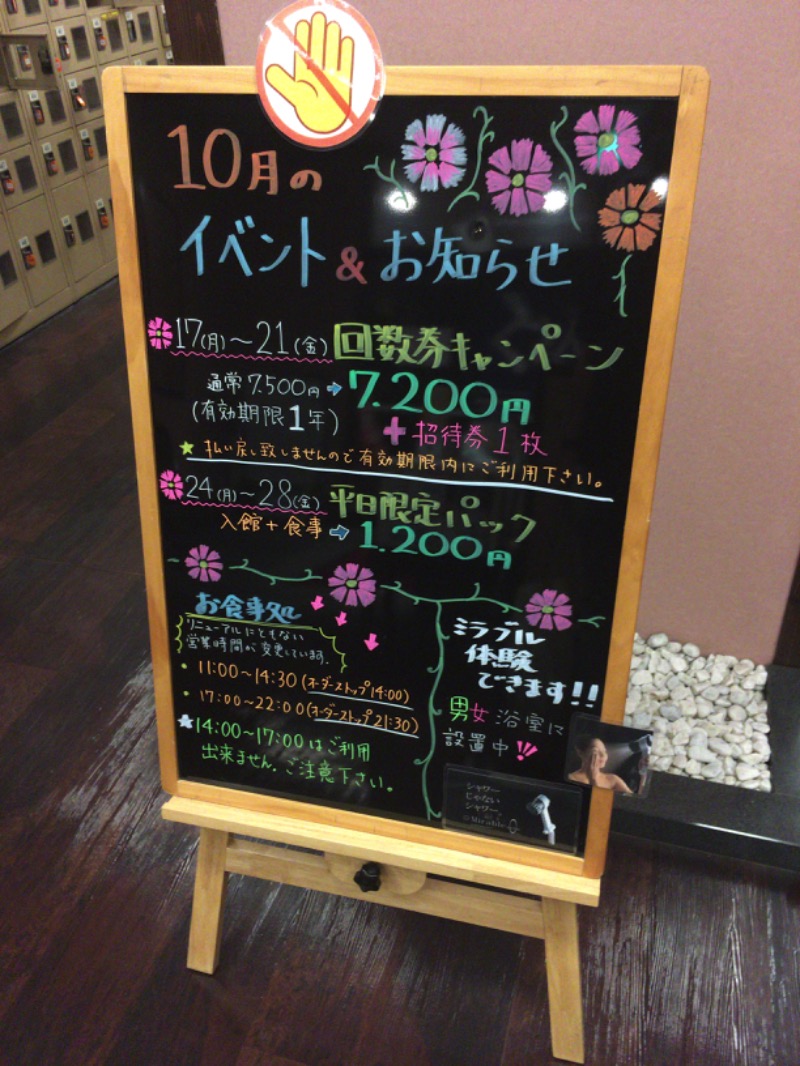 10月の
イベント&お知らせ
17(月)〜21(金) 回数券キャンペーン
通常7.500円➡7.200円
(有効期限1年)
+招待券1枚
★払い戻し致しませんので有効期限内にご利用下さい。
24(月)〜28(金) 平日限定パック
入館+食事➡1.200円
お食事処
リニューアルにともない
営業時間が変更しています。
・11:00〜14:30(オーダーストップ14:00)
・17:00〜22:00(オーダーストップ21:30)
★14:00〜17:00はご利用
出来ません。ご注意下さい。
ミラブル
体験
できます!!
男女浴室に
設置中!!
シャワー
じゃない
シャワー。